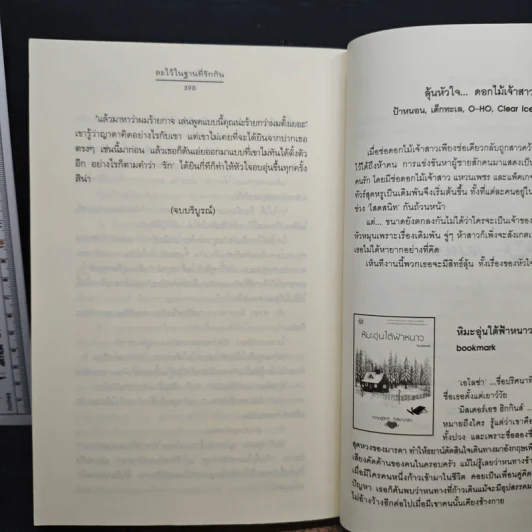 ละไว้ในฐานที่รักกัน
398
'แล้วมาหาว่าผมร้ายกาจ เล่นพูดแบบนี้คุณน่ะร้ายกว่าผมตั้งเยอะ'
เขารู้ว่าญาดาคิดอย่างไรกับเขา แต่เขาไม่เคยที่จะได้ยินจากปากเธอ
ตรงๆ เช่นนี้มาก่อน แล้วเธอก็ดันเอ่ยออกมาแบบที่เขาไม่ทันได้ตั้งตัว
อีก อย่างไรก็ตามคำว่า 'รัก' ได้ยินกี่ทีก็ทำให้หัวใจอบอุ่นขึ้นทุกครั้ง
สิน่า
(จบบริบูรณ์)
ลุ้นหัวใจ... ดอกไม้เจ้าสาว
ป้าหนอน, เด็กทะเล, O-HO, Clear Ice
เมื่อช่อดอกไม้เจ้าสาวเพียงช่อเดียวกลับถูกสาวคว้า
ไว้ได้ถึงห้าคน การแข่งขันหาผู้ชายสักคนมาแสดงเป็น
คนรัก โดยมีช่อดอกไม้เจ้าสาว แหวนเพชร และแพ็คเกจ
ทัวร์สุดหรูเป็นเดิมพันจึงเริ่มต้นขึ้น ทั้งที่แต่ละคนอยู่ใน
ช่วง 'โสดสนิท' กันถ้วนหน้า
แต่... ขณะยังตกลงกันไม่ได้ว่าใครจะเป็นเจ้าของ
หัวหมุนเพราะเรื่องเดิมพัน จู่ๆ ห้าสาวก็เพิ่งจะสังเกต
เธอไม่ได้หายากอย่างที่คิด
เห็นทีงานนี้พวกเธอจะมีสิทธิ์ลุ้น ทั้งเรื่องของหัวใจ
หิมะอุ่นใต้ฟ้าหนาว
หิมะอุ่นใต้ฟ้าหนาว
bookmark
'เอไลซ่า' ...ชื่อปริศนาที่
ชื่อเธอตั้งแต่เยาว์วัย
'มิสเตอร์เอช ฮิกกินส์' ...
หมายถึงใคร รู้แต่ว่าเขาคือ
ทั้งปวง และเพราะชื่อสองชื่อ
สุดหวงของมารดา ทำให้
ตัดสินใจเดินทางมาอังกฤษ
เสียงคัดค้านของคนในครอบครัว แม้ไม่รู้เลยว่าหนทางข้าง
เมื่อมีใครคนหนึ่งก้าวเข้ามาในชีวิต คอยเป็นเพื่อนคู่คิด
ปัญหา เธอก็ค้นพบว่าหนทางที่ก้าวเดินแม้จะมีอุปสรรค
ไม่อ้างว้างอีกต่อไปเมื่อมีเขาคนนั้นเคียงข้างกาย